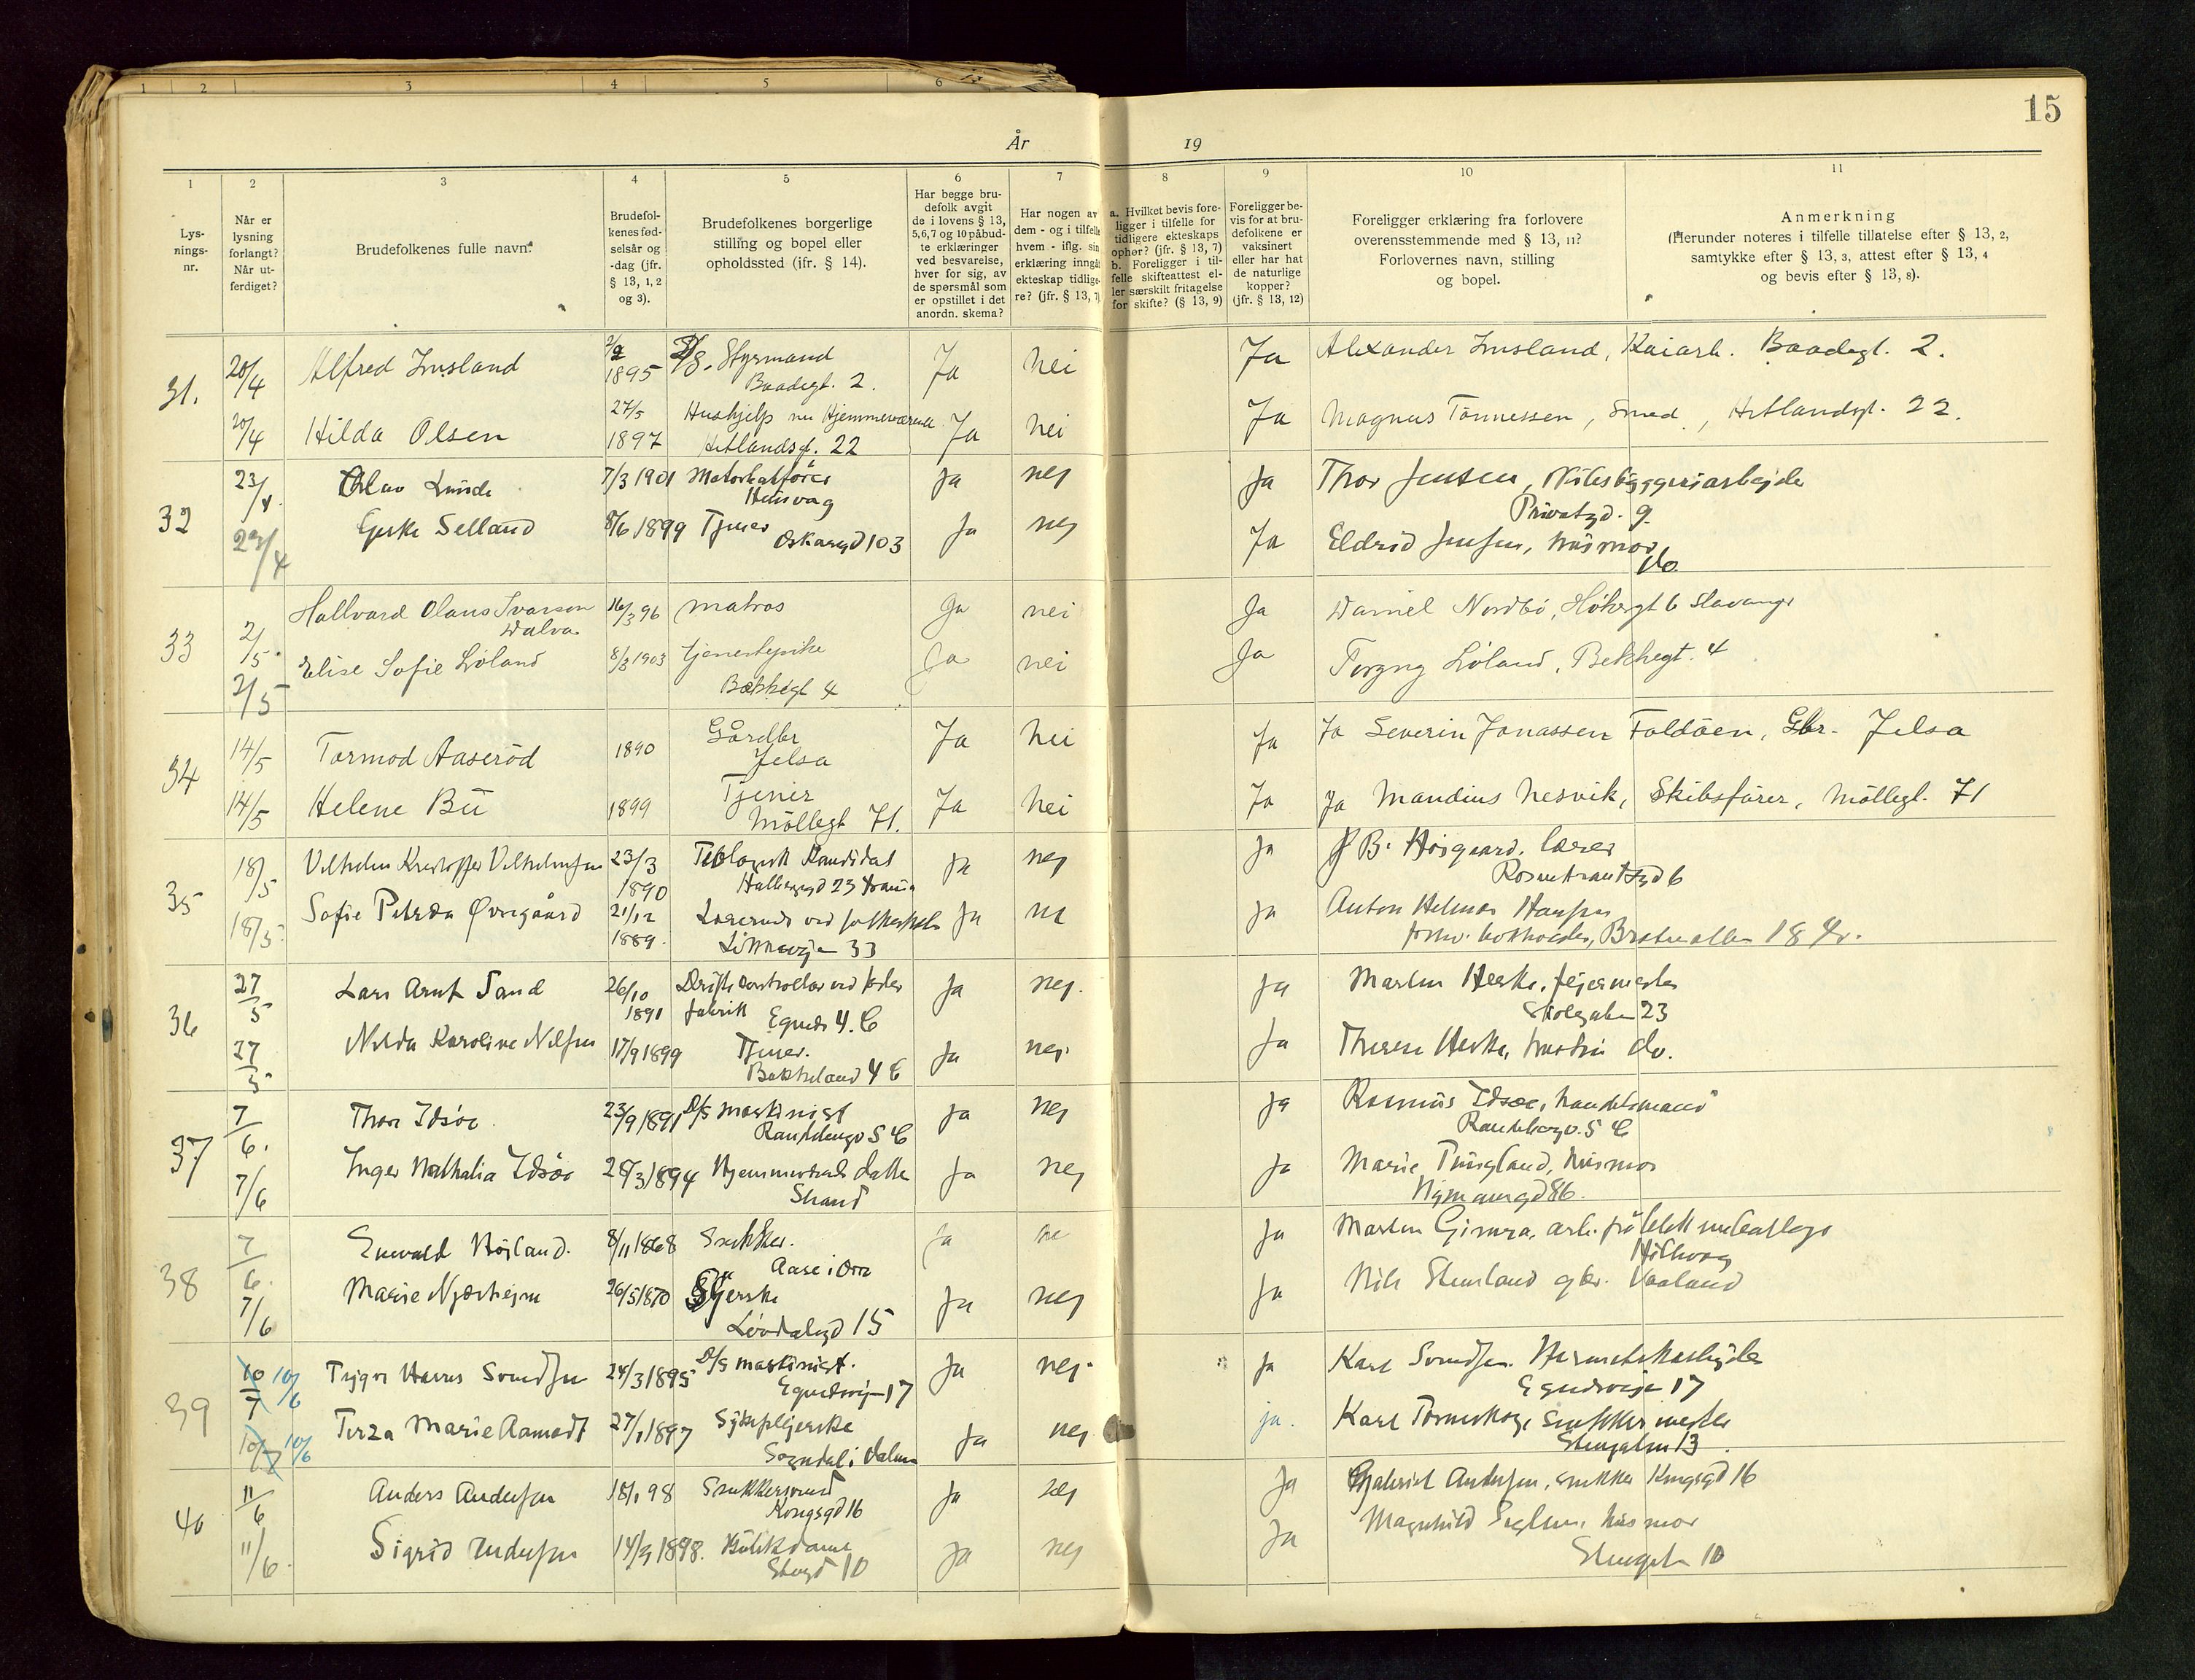 1 2 3 4 5 6
15
År 19
1 2 3 4 5 6 7 8 9 10 11
Lysnings-
nr.
Når er
lysning
forlangt?
Når ut-
ferdiget?
Brudefolkenes fulle navn.
Brudefol-
kenes fød-
selsår og
-dag (jfr.
§ 13, 1, 2
og 3).
Brudefolkenes borgerlige
stilling og bopel eller
opholdssted (jfr. § 14).
Har begge bru-
defolk avgit
de i lovens § 13,
5,6,7 og 10 påbud-
te erklæringer
ved besvarelse,
hver for sig, av
de spørsmål som
er opstillet i det
anordn. skema?
Har nogen av
dem - og i tilfelle
hvem - iflg. sin
erklæring inngåt
ekteskap tidlige-
re? (jfr. § 13, 7)
a. Hvilket bevis fore-
ligger i tilfelle for
tidligere ekteskaps
ophør? (jfr. § 13, 7)
b. Foreligger i til-
felle skifteattest el-
ler særskilt fritagelse
for skifte? (§ 13, 9)
Foreligger be-
vis for at bru-
defolkene er
vaksinert
eller har hat
de naturlige
kopper?
(jfr. § 13, 12)
Foreligger erklæring fra forlovere
overensstemmende med § 13, 11?
Forlovernes navn, stilling
og bopel.
Anmerkning
(Herunder noteres i tilfelle tillatelse efter § 13, 2,
samtykke efter § 13, 3, attest efter § 13, 4
og bevis efter § 13, 8).
31. 20/4 Alfred Imsland 1895 Styrmand Ja Nei Ja Alexander Imsland, Kaiarb. Baadegt. 2.
Baadegt. 2.
20/4 Hilda Olsen 27/5 1897 Hushjelp nu Hjemmeværende Ja Nei Ja Magnus Tønnessen, Smed, Hetlandsgt. 22.
Hetlandsgt. 22
32 23/4 Olav Lunde 7/3 1901 Motorbaatfører Ja nej Ja Thor Jensen,
Privatgd. 9.
23/4 Selland 8/6 1899 Tjener Oskarsgd 103 Ja nej Ja Eldrid Jensen, husmor
do
33 2/5 Hallvard Olaus Ivarson 16/3 96 matros Ja nei Ja Daniel Nordbø, 6 Stavanger
2/5 Elise Sofie Løland 8/3 1903 tjenestepike Ja nei Ja Torgny Løland, Bekkegt. 4
Bekkegt 4
34 14/5 Tormod Aaserød 1890 Gårdbr Ja Nei Ja Ja Severin Jonassen Foldøen, Gbr. Jelsa
Jelsa
14/5 Helene Bü 1899 Tjener Ja Nei Ja Ja Mandius Nesvik, Skibsfører, Møllegt. 71
Møllegt 71.
35 18/5 Vilhelm Kristoffer Vilhelmsen 23/3 1890 Teologisk Kandidat Ja nej Ja B. Høigaard. lærer
6
18/5 Sofie Petrea Øvregaard 21/12 1889. Lærerinde ved folkeskolen Ja Ja Anton Helmer Hansen
33
36 27/5 Lars Arnt Sand 26/10 1891 Ja nej. Ja Martin Herke, fejermester
fabrik 4. C
23
27/5 Nilda Karoline Nilsen 17/9 1899 Tjener. Ja nej. Ja Therese Herke, hustru do.
Bekkeland 4 C
37 7/6. Thor Idsøe 23/9 1891 D/S maskinist Ja nej Ja Rasmus Idsøe, handelsmand
5 C 5 C
7/6 Inger Nathalia Idsøe 28/3 1894 Ja nej Ja Marie Tungland, husmor
Strand Nymansgd 86.
38 7/6. Enevald Høiland. 8/11 1868 Snekker. Ja Ja Martin
Aase i
7/6 Marie Njærheim 26/5 1870 Syerske Ja nej Ja Nils Stensland gbr. Vaaland
Løvdalsgd 15
39 10/7 10/6 Trygve Hannes Svendsen 24/3 1895 D/S maskinist. Ja nej. Ja Karl Svendsen. Hermetikarbejder
Egundsvejen 17 Egundsvejen 17
10/7 10/6 Tirza Marie Aamodt 27/1 1897 Sykepleierske Ja nej ja. Karl Snekkermester
Sogndal i Dalene Stengaten 13
40 11/6 Anders Andersen 18/1 98 Snekkersvend Ja nej Ja Gabriel Andersen, snekker Kongsgd 16
Kongsgd 16
11/6. Sigrid Andersen 14/9 1898. Butikdame Ja nej Ja Magnhild husmor
10 10